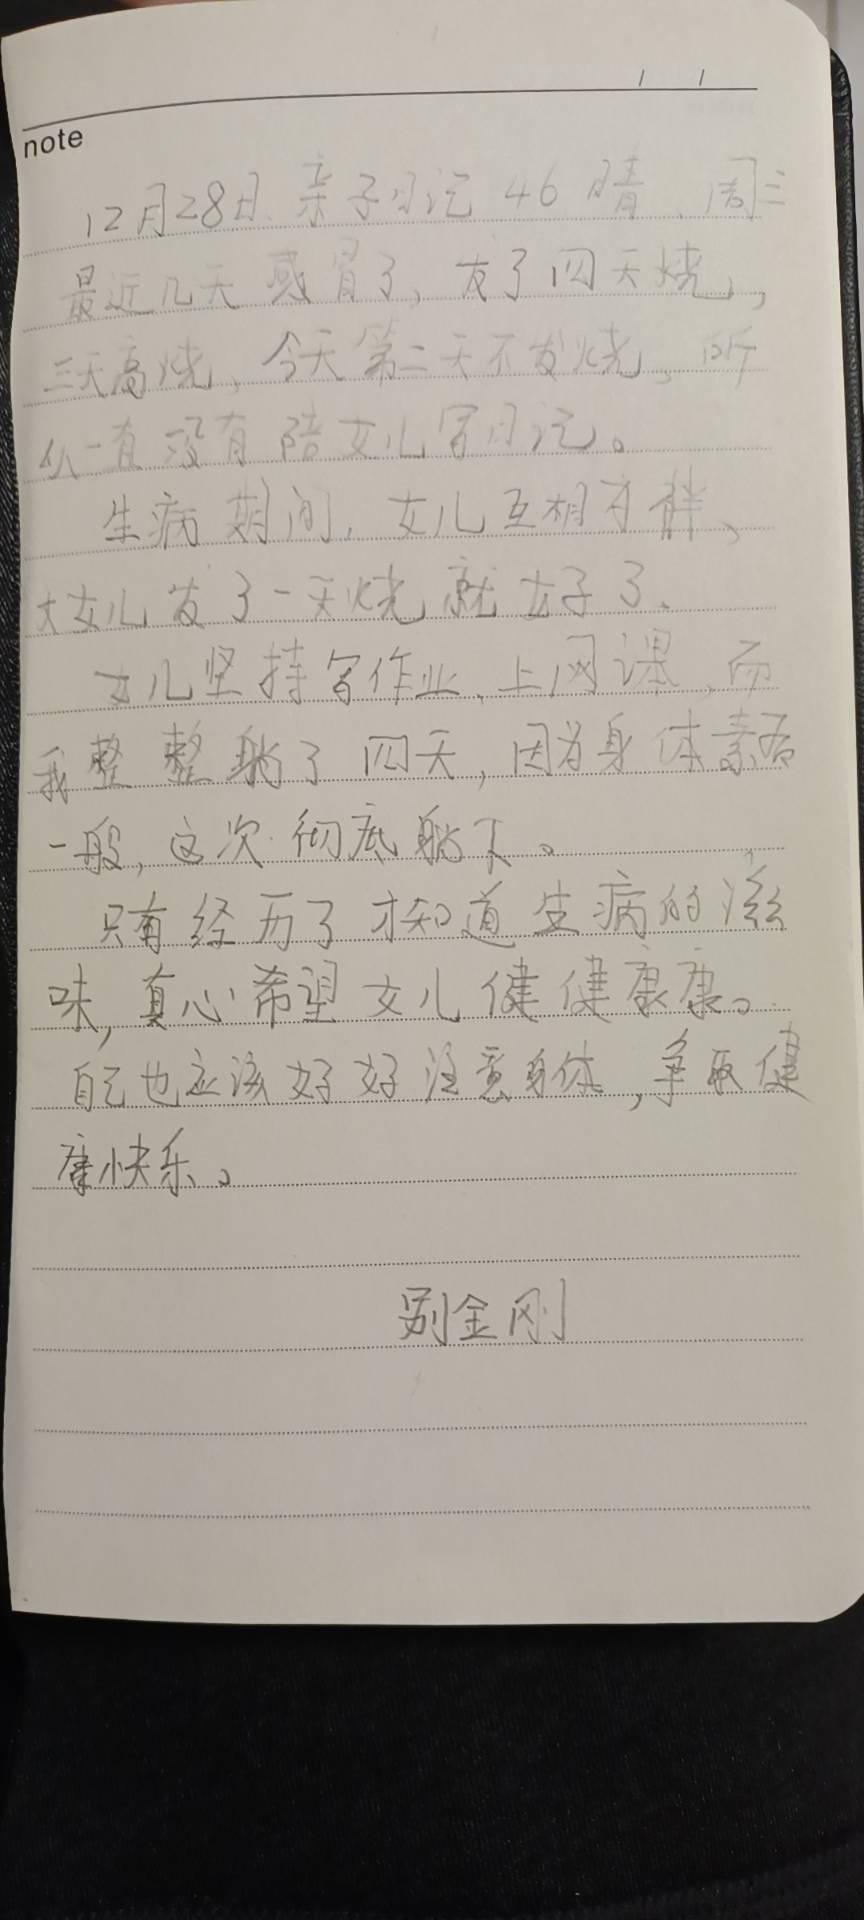 note
12月28日.亲子日记 46 晴、周三
最近几天感冒了,发了四天烧,
三天高烧、今天第二天不发烧、所
以一直没有陪女儿写日记。
生病期间,女儿互相才伴、
大女儿发了一天烧就好了、
女儿坚持写作业、上网课、而
我整整躺了四天,因为身体素
一般,这次彻底躺下。
只有经历了才知道生病的滋
味,真心希望女儿健健康康。
自己也应该好好注意身体,争取健
康快乐。
别金刚